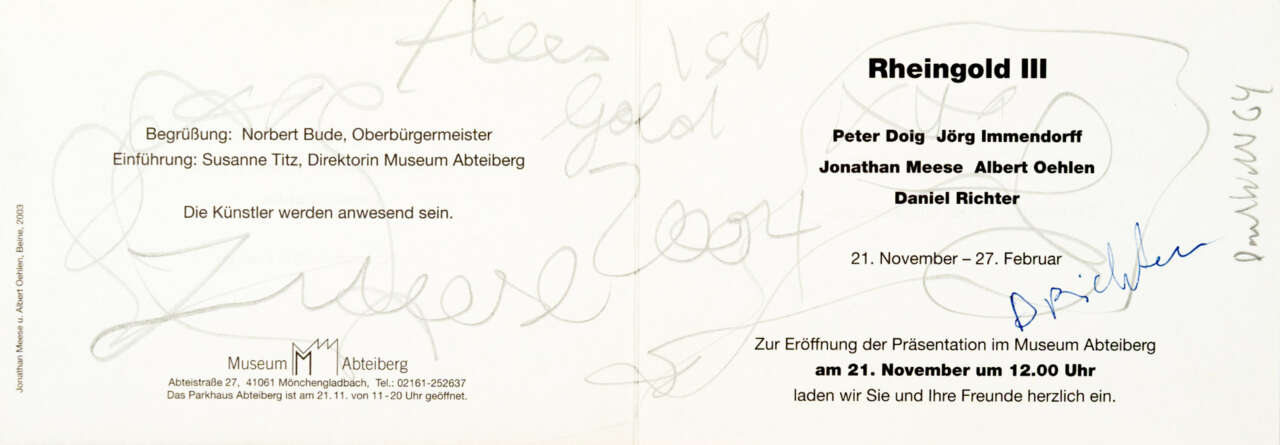 Alles ist
Gold
JMeese 2004
Begrüßung: Norbert Bude, Oberbürgermeister
Einführung: Susanne Titz, Direktorin Museum Abteiberg
Die Künstler werden anwesend sein.
Museum Abteiberg
Abteistraße 27, 41061 Mönchengladbach, Tel.: 02161-252637
Das Parkhaus Abteiberg ist am 21.11. von 11-20 Uhr geöffnet.
Jonathan Meese u. Albert Oehlen, Beine, 2003
Rheingold III
Peter Doig Jörg Immendorff
Jonathan Meese Albert Oehlen
Daniel Richter
21. November – 27. Februar
D Richter
Zur Eröffnung der Präsentation im Museum Abteiberg
am 21. November um 12.00 Uhr
laden wir Sie und Ihre Freunde herzlich ein.